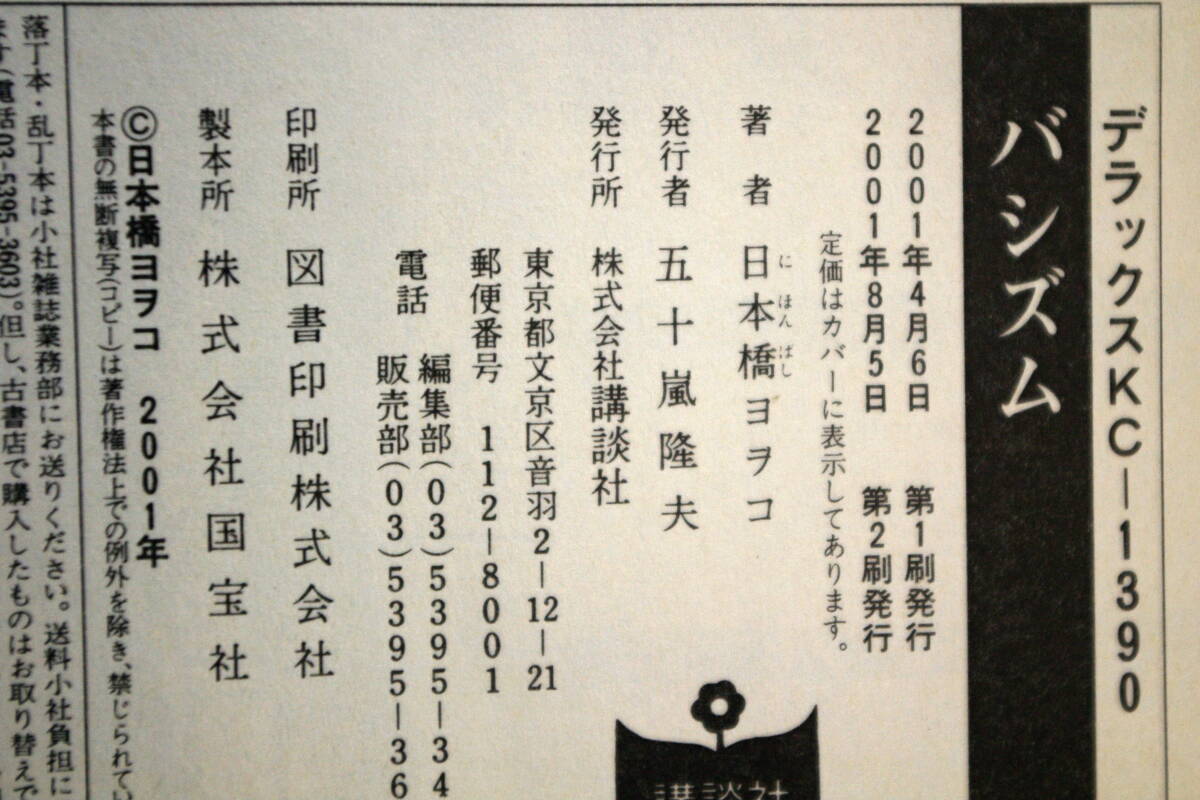 デラックスKC－1390
バシズム
2001年4月6日　第1刷発行
2001年8月5日　第2刷発行
定価はカバーに表示してあります。
著者　日本橋ヨヲコ
にほんばし
発行者　五十嵐隆夫
発行所　株式会社講談社
東京都文京区音羽2－12－21
郵便番号　112－8001
電話　編集部(03)5395－34
販売部(03)5395－36
印刷所　図書印刷株式会社
製本所　株式会社国宝社
Ⓒ日本橋ヨヲコ　2001年
本書の無断複写(コピー)は著作権法上での例外を除き、禁じられてい
落丁本・乱丁本は小社雑誌業務部にお送りください。送料小社負担に
ます(電話03-5395-3603)。但し、古書店で購入したものはお取り替えで
講談社